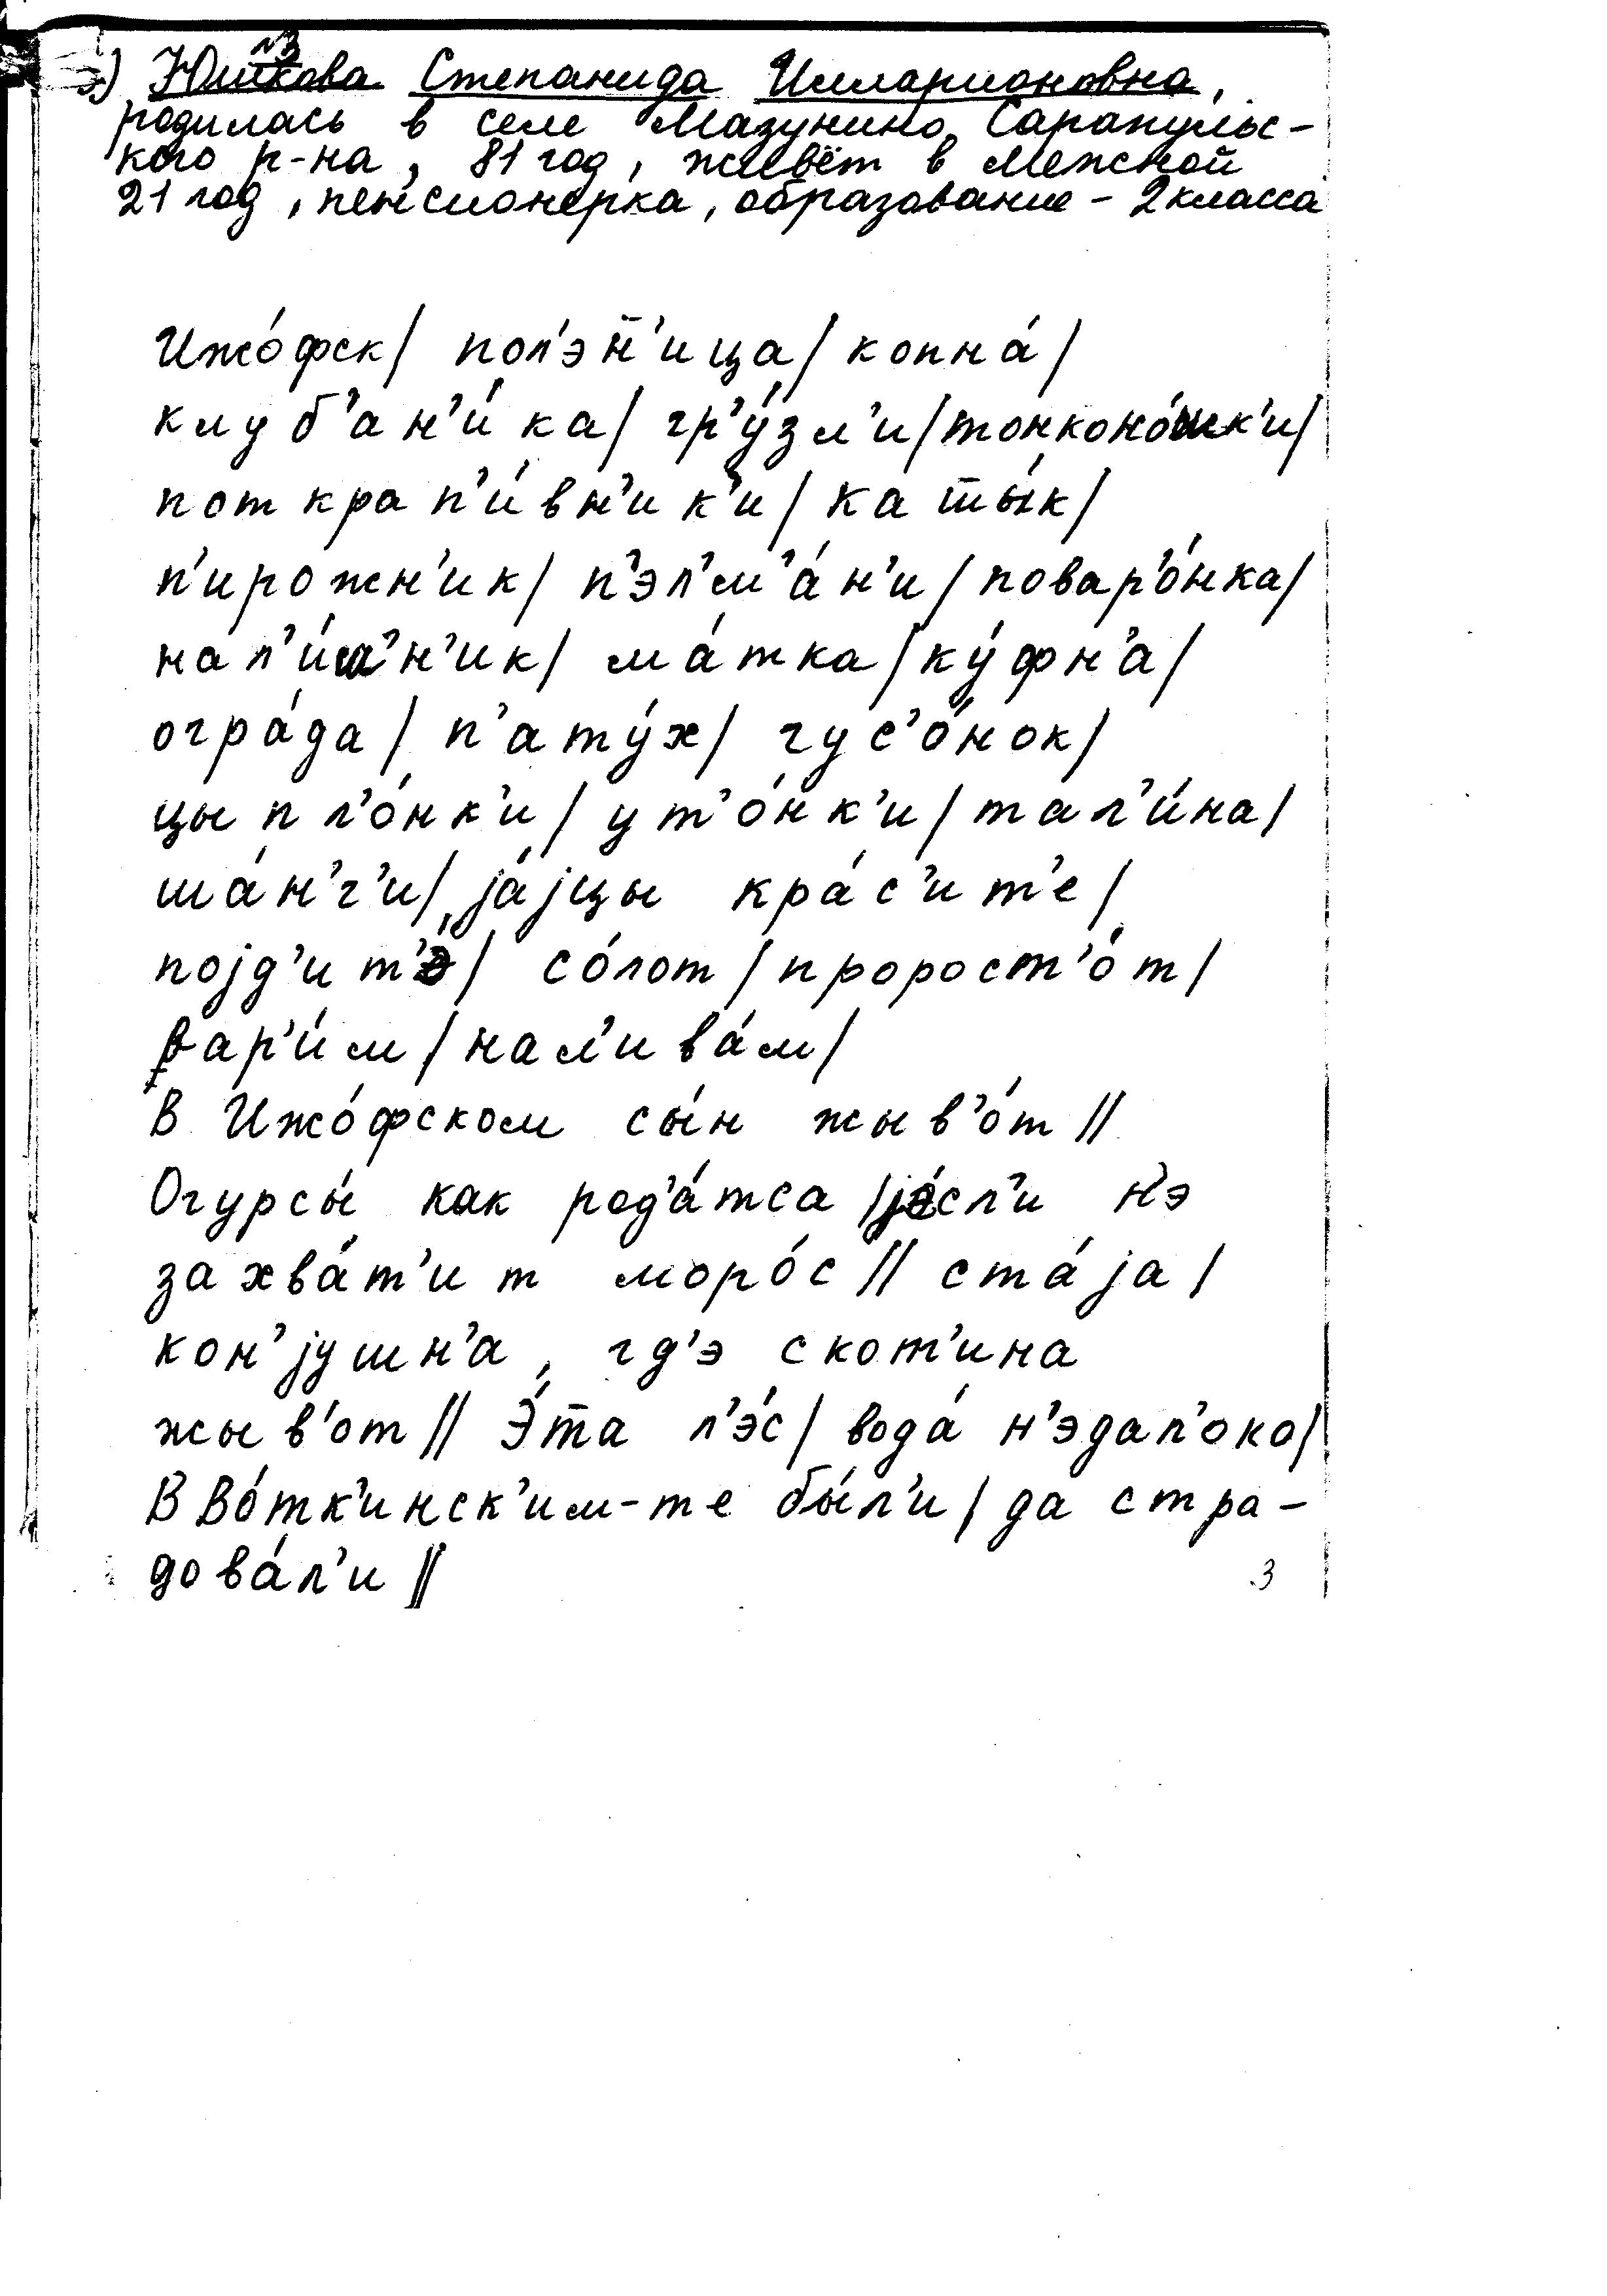 №3
3) Юшкова Степанида Илларионовна,
родилась в селе Мазунино, Сарапульс-
кого р-на, 81 год, живёт в Межной
21 год, пенсионерка, образование - 2 класса
Ижо́фск/ пол'эн̄'ица/ копна́/
клуб'ан'и́ка/ гр'у́зл'и/тонконо́шк'и/
поткрап'и́вн'ик'и/ каты́к/
п'ирожн'ик/ п'эл'м'а́н'и/ повар'о́нка/
нал'и́ш'н'ик/ ма́тка/ку́фн'а/
огра́да/ п'ату́х/ гус'о́нок/
цыпл'о́нк'и/ ут'о́нк'и/ тал'и́на/
ша́н'г'и/ја́јцы кра́с'ит'е/
појд'ит'э́/ со́лот/пророст'о́т/
вар'и́м/нал'ива́м/
В Ижо́фском сы́н жыв'о́т//
Огурсы́ как род'а́тса/јэ́сл'и н'э
захва́т'ит моро́с// ста́ја/
кон'јушн'а, гд'э скот'ина
жыв'от// Э́та л'э́с/ вода́ н'эдал'око/
В Во́тк'инск'им-те бы́л'и/да стра-
дова́л'и//
3